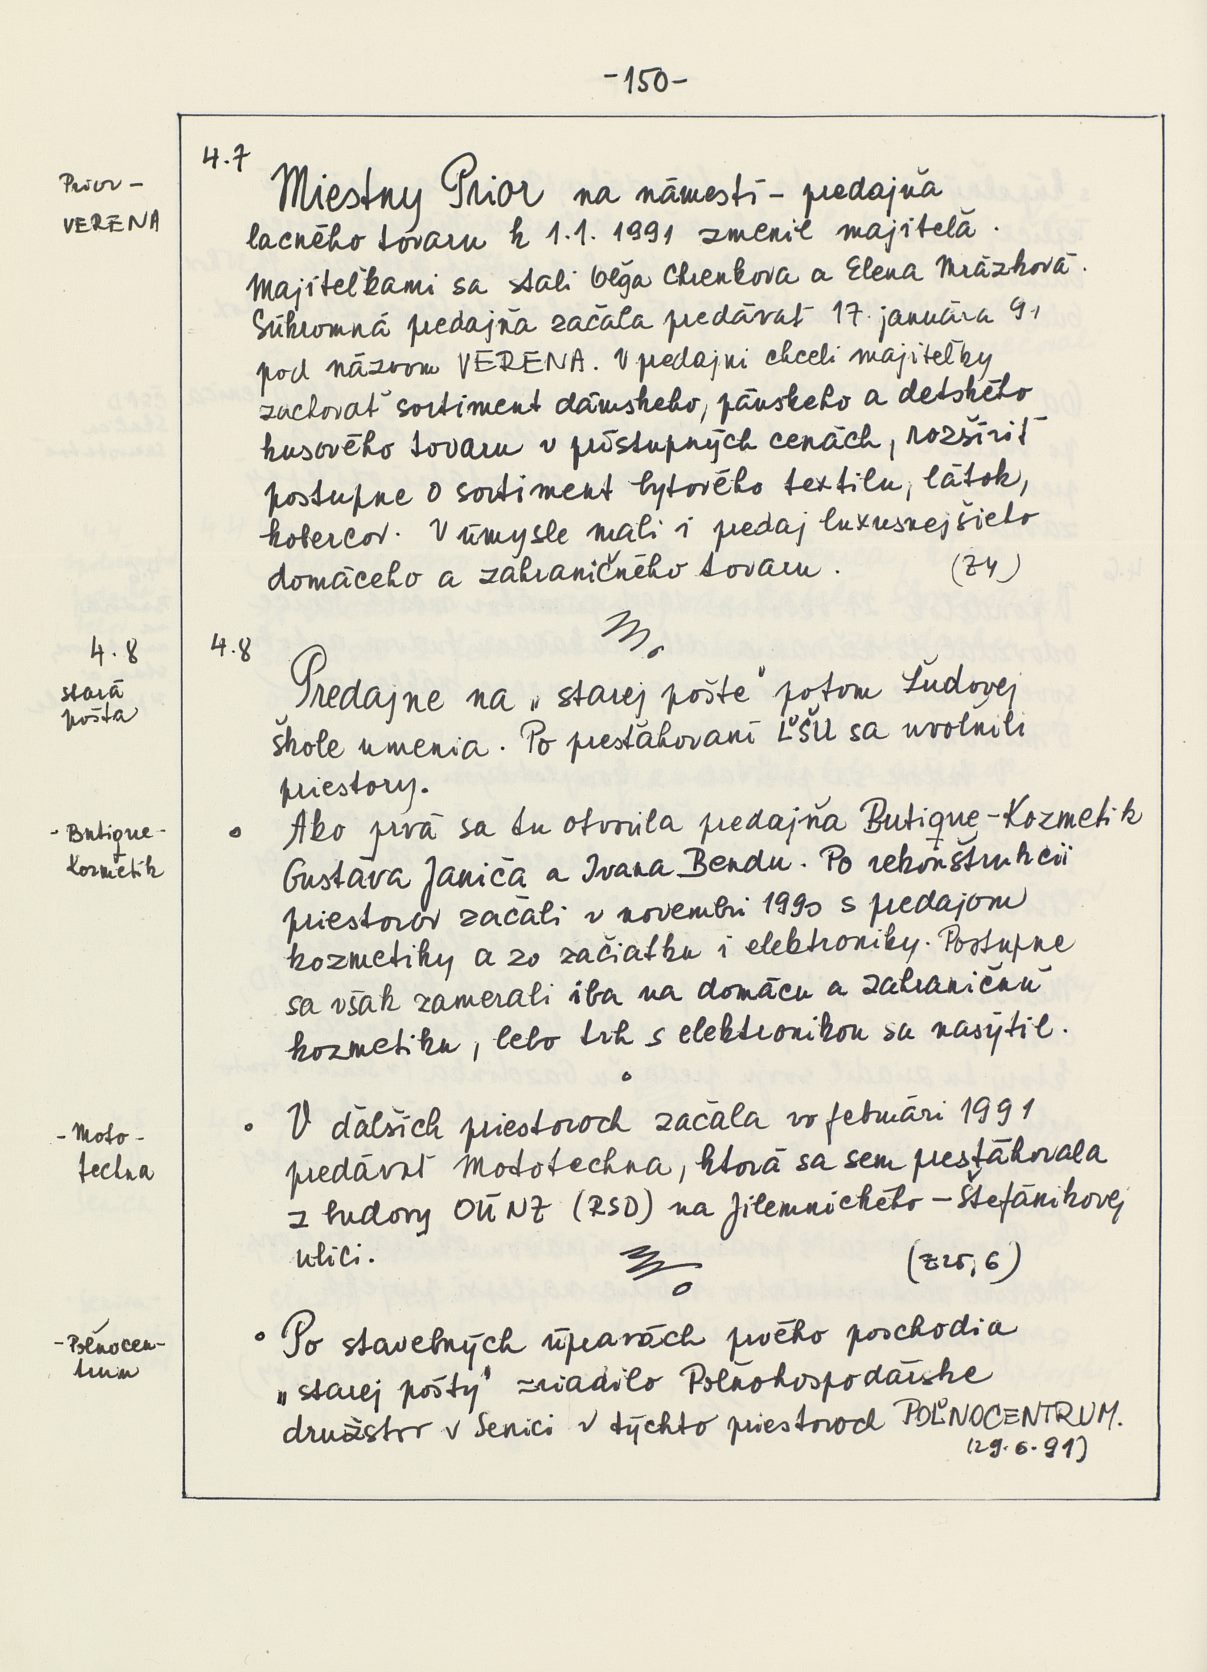 -150-
4.7
Prior-
VERENA
Miestny Prior na námestí - predajňa
lacného tovaru k 1.1. 1991 zmenil majiteľa.
Majiteľkami sa stali Oľga Chrenkova a Elena Mrázková.
Súkromná predajňa začala predávať 17. januára 91
pod názvom VERENA. V predajni chceli majiteľky
zachovať sortiment dámskeho, pánskeho a detského
kusového tovaru v prístupných cenách, rozšíriť
postupne o sortiment bytového textilu, látok,
kobercov. V úmysle mali i predaj luxusnejšieho
domáceho a zahraničného tovaru. (Z4)
4.8
stará
pošta
4.8
Predajne na „starej pošte" potom Ľudovej
škole umenia. Po presťahovaní ĽŠU sa uvoľnili
priestory.
- Butique -
Kozmetik
• Ako prvá sa tu otvorila predajňa Butique-Kozmetik
Gustáva Janiča a Ivana Bendu. Po rekonštrukcii
priestorov začali v novembri 1990 s predajom
kozmetiky a zo začiatku i elektroniky. Postupne
sa však zamerali iba na domácu a zahraničnú
kozmetiku, lebo trh s elektronikou sa nasýtil.
- Moto -
techna
• V ďalších priestoroch začala vo februári 1991
predávať Mototechna, ktorá sa sem presťahovala
z budovy OÚNZ (RSD) na Jilemnického - Štefánikovej
ulici. (Z25,6)
- Poľnocen-
trum
• Po stavebných úpravách prvého poschodia
„starej pošty" zriadilo Poľnohospodárske
družstvo v Senici v týchto priestoroch POĽNOCENTRUM.
(29.6.91)